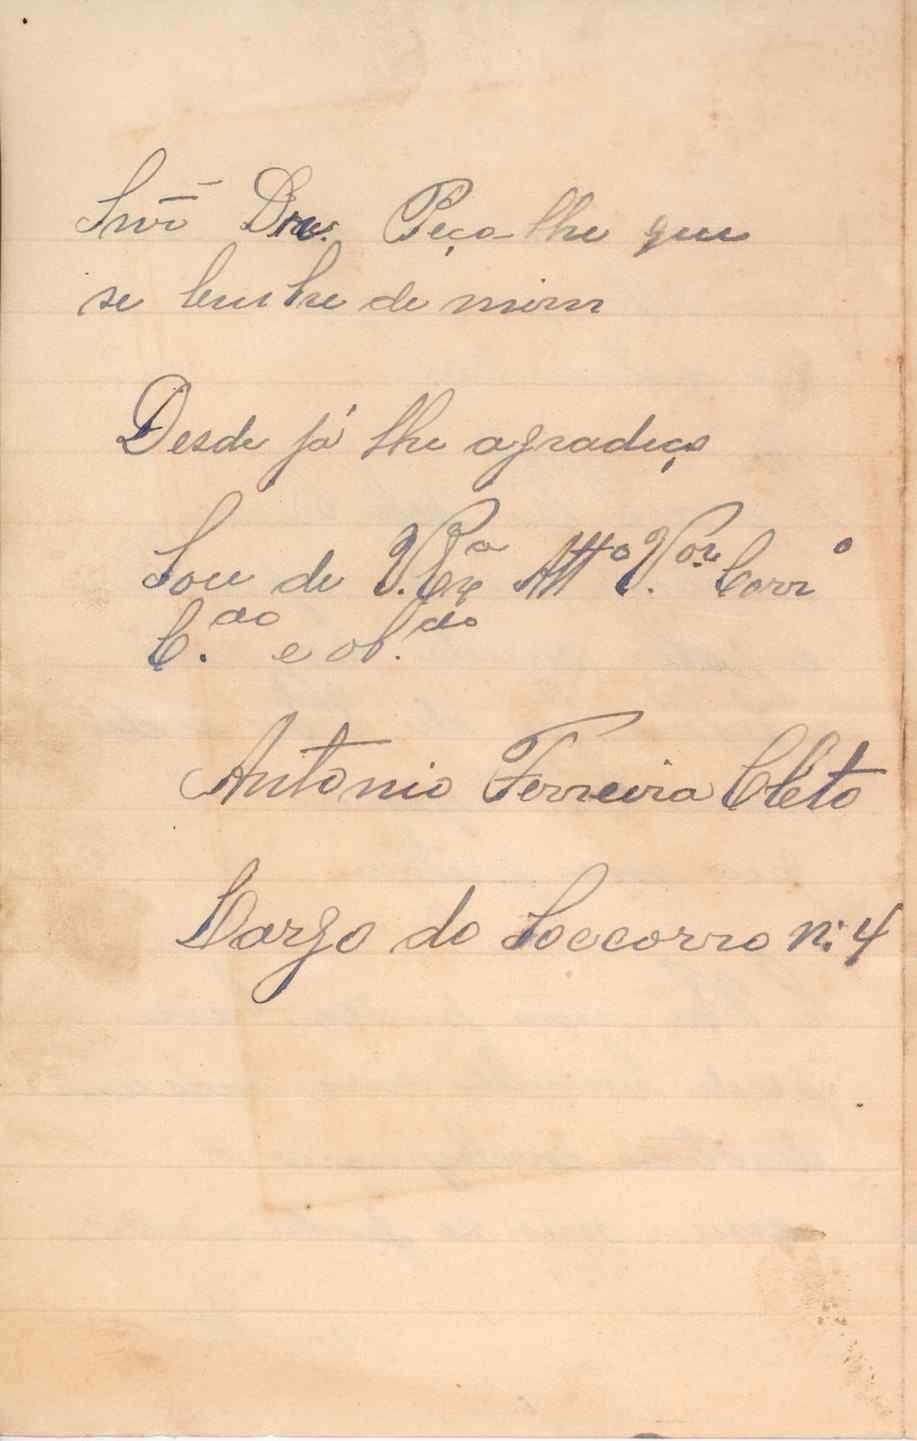 Snr Dr. Peço-lhe que
se lembre de mim
Desde já lhe agradeço
Sou de V. Exª Attº V.or
C.do e ob.do
Antonio Ferreira Cleto
Largo do Soccorro n.º 4